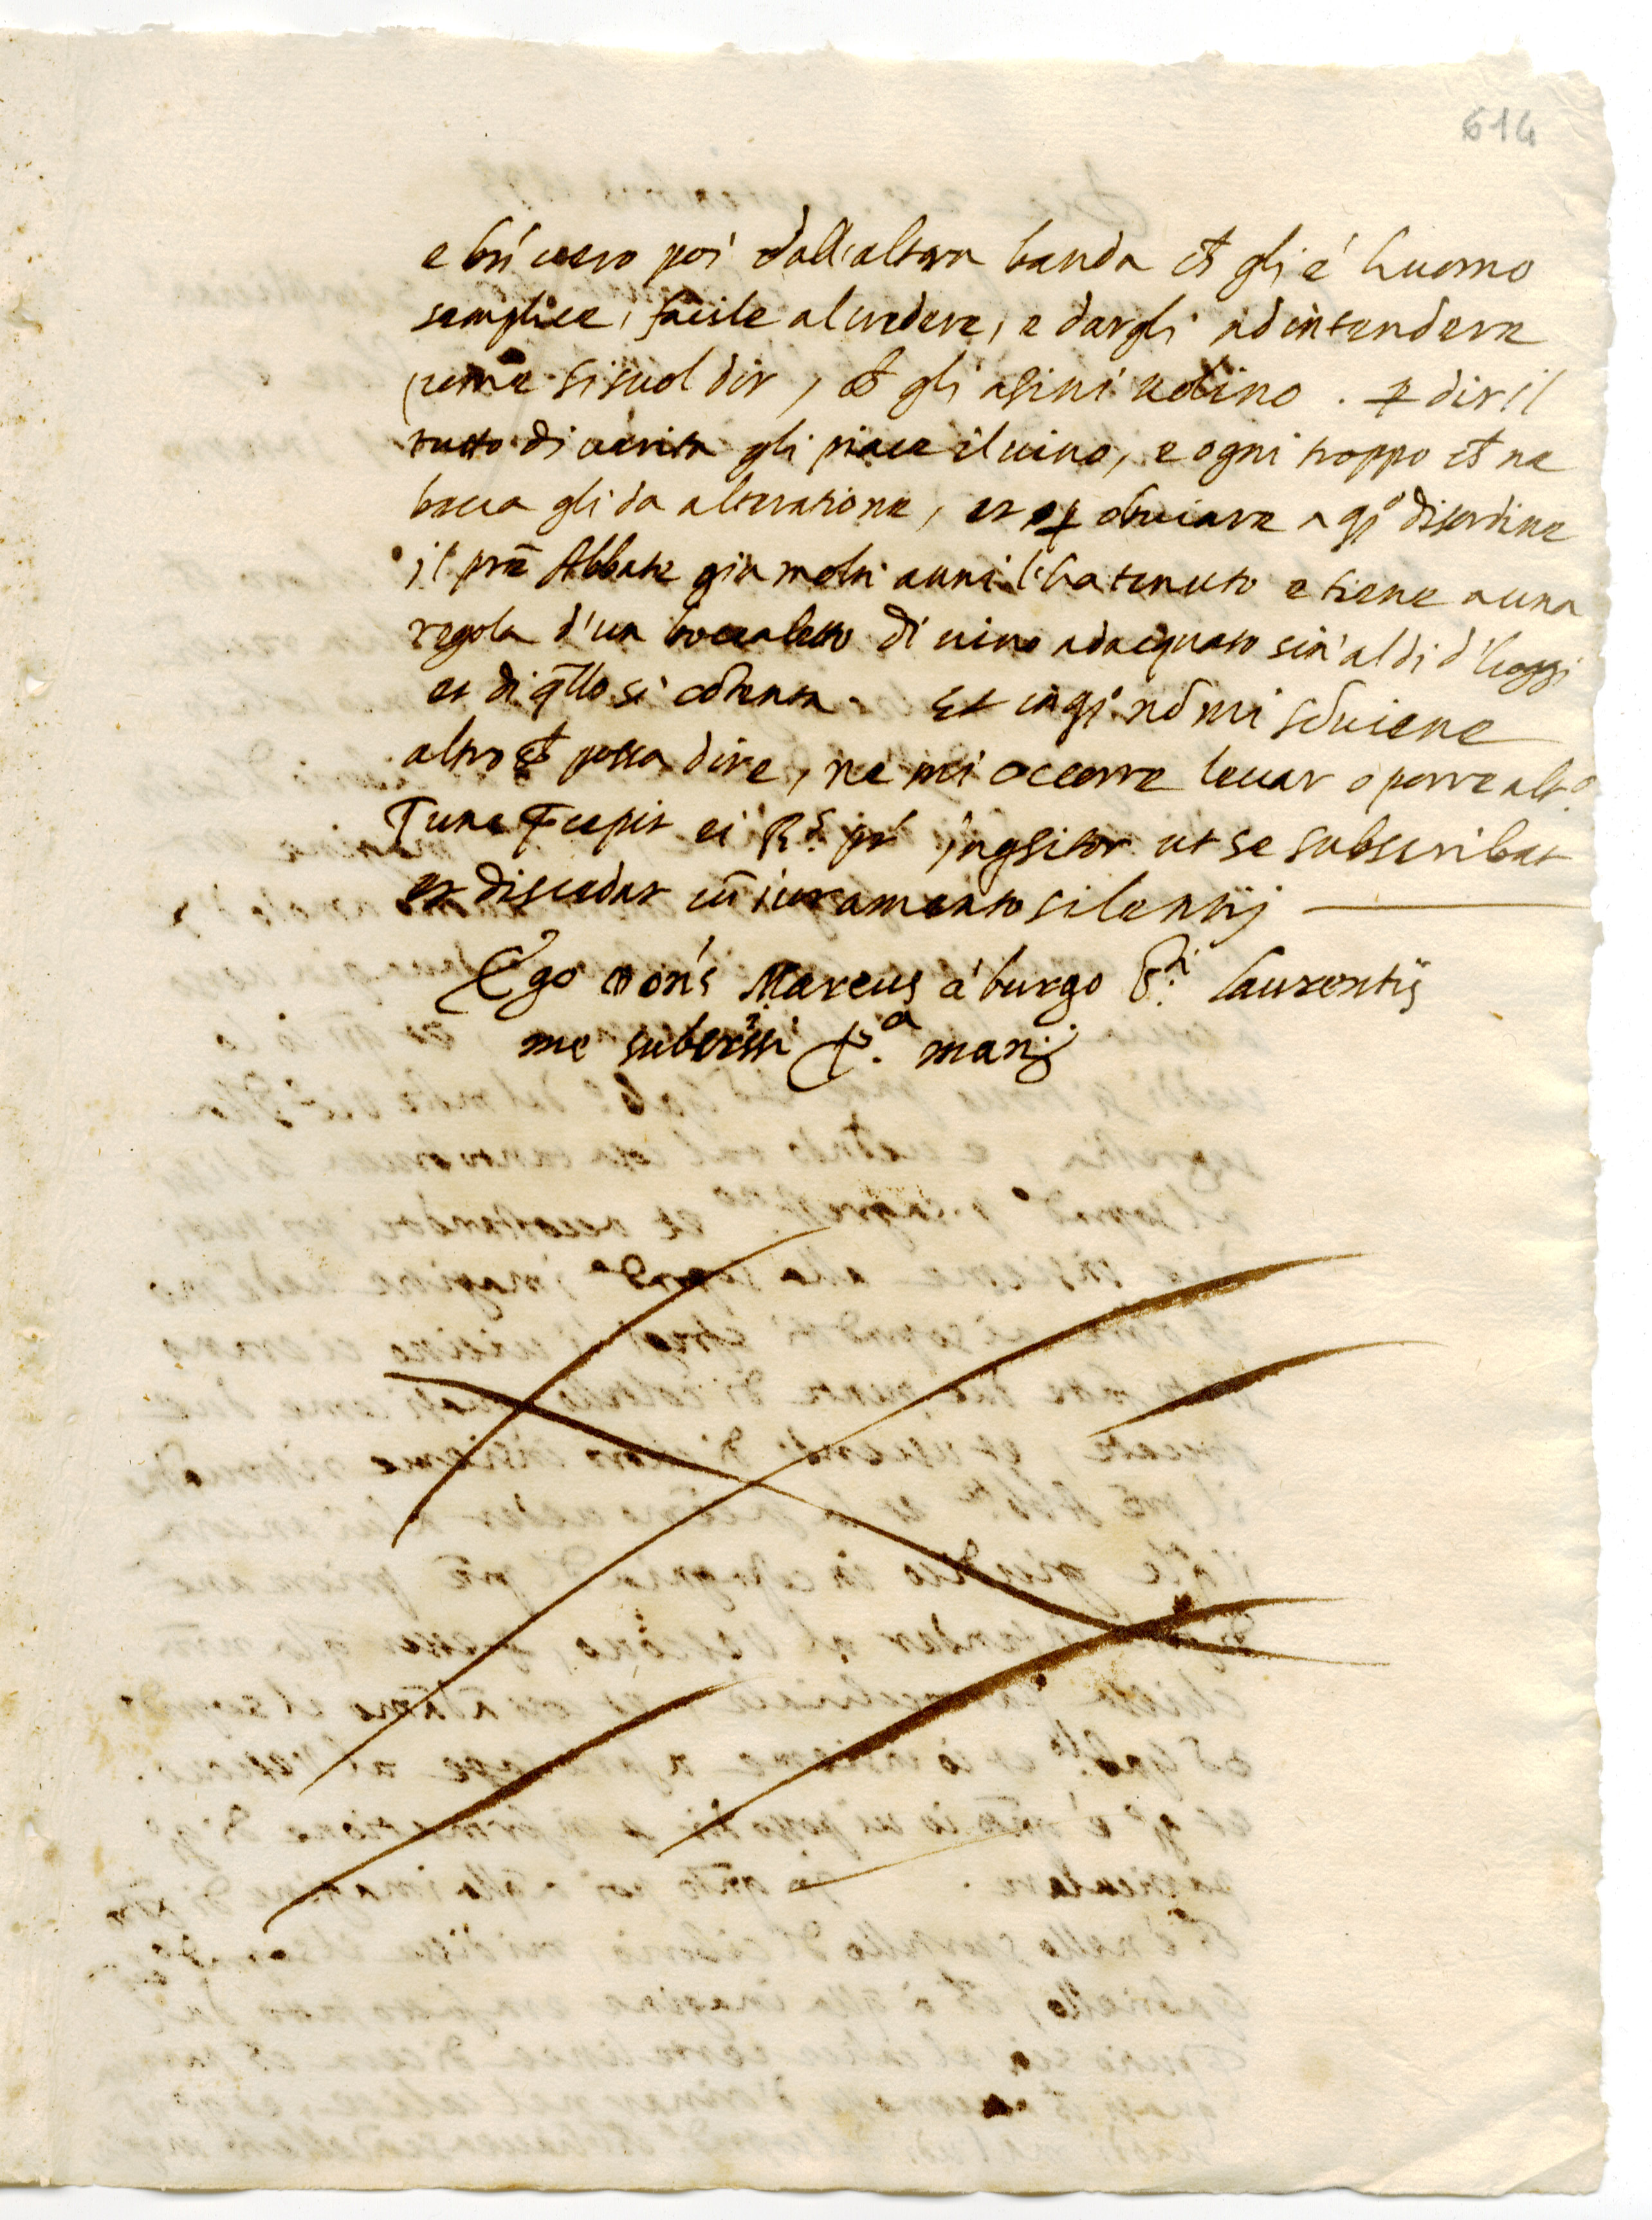 614
e bñ uero poi dall'altra banda ch̃ gli é huomo
semplice, facile al credere, e dargli ad intendere
come si suol dir, ch̃ gli asini uolino. ꝑ dir il
tutto di uerita gli piace il uino, e ogni troppo ch̃ ne
beua gli da alteratione, et ꝑ obuiare a q̃sto disordine
il prẽ Abbate gia molti anni l'ha tenuto e tiene a una
regola d'un boccaletto di uino adacquato sin' al di d'hoggi
et di q̃llo si cõtenta. Et in q̃sto nõ mi souiene
altro ch̃ possa dire, ne mi occorre leuar o porre alt.º
Tunc p̃cepit ei R.s pr̃ inq̃sitor ut se subscribat
et discedat cũ iuramento silentij
Ego Marcus á burgo S.ti Laurentij
me subscrissi ꝓ.a manj